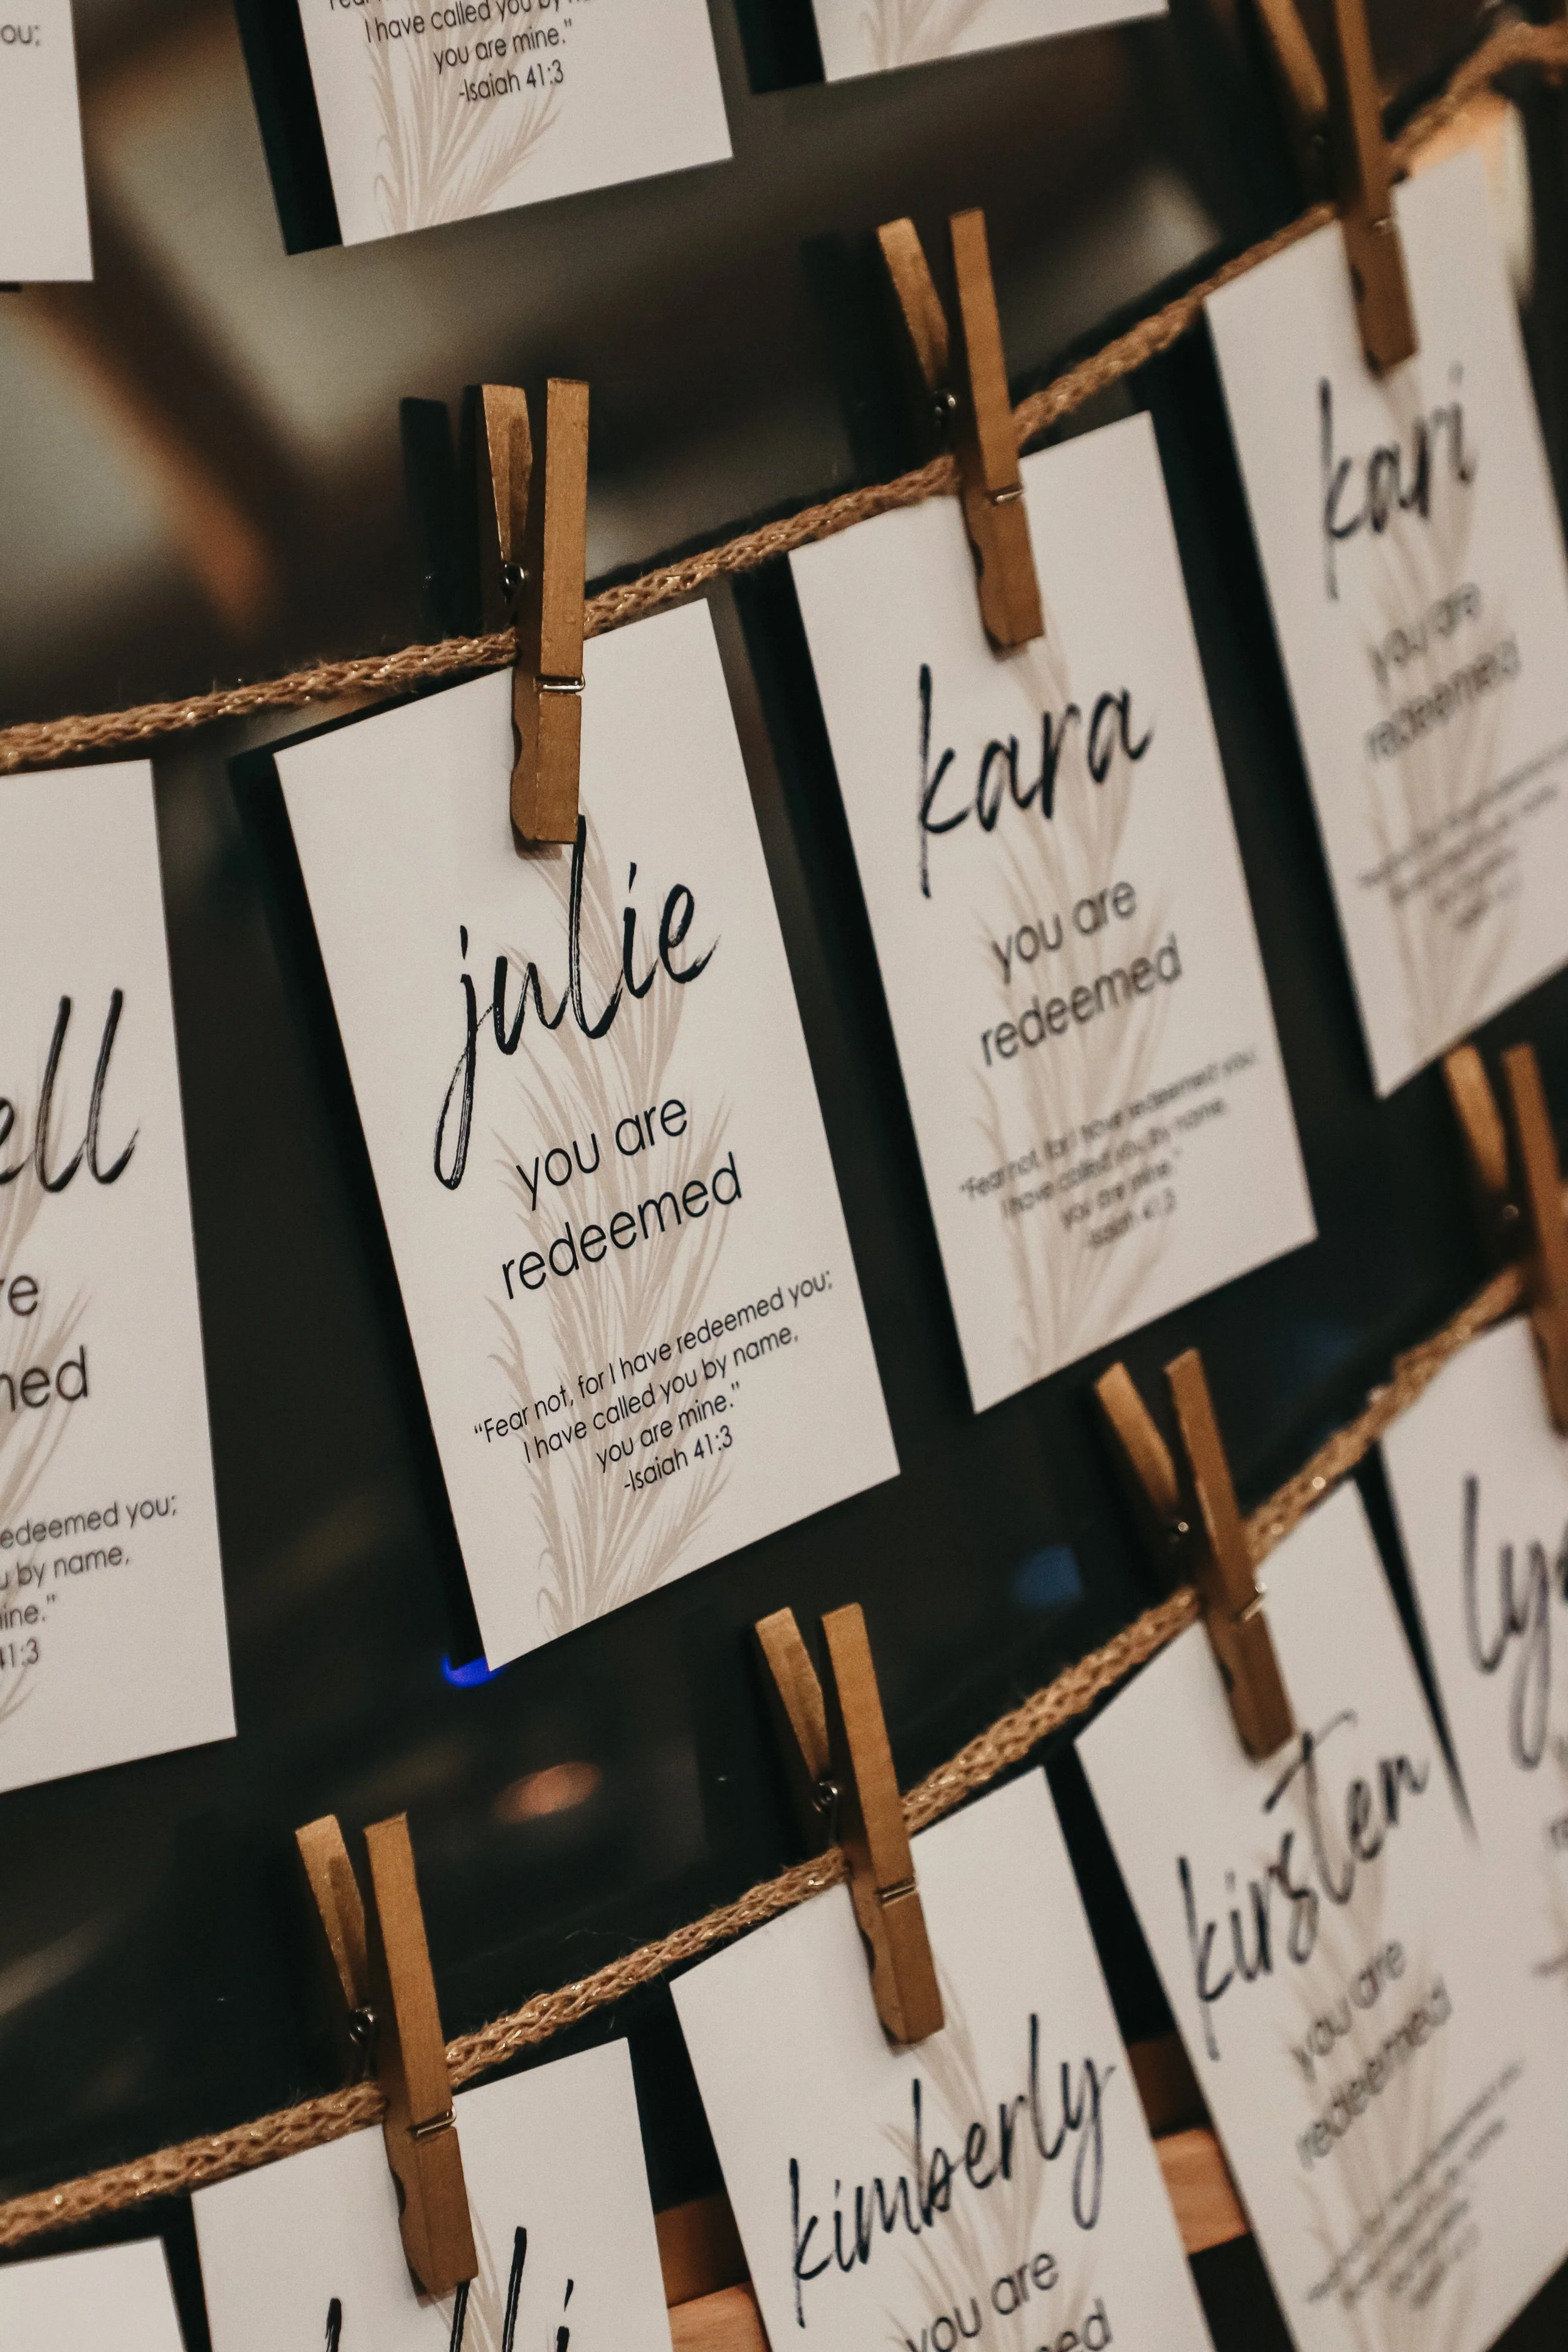 ou;
I have called you by
you are mine."
-Isaiah 41:3
kari
you are
redeemed
kara
you are
redeemed
"Fear not, for I have redeemed you;
I have called you by name,
you are mine."
-Isaiah 41:3
julie
you are
redeemed
"Fear not, for I have redeemed you;
I have called you by name,
you are mine."
-Isaiah 41:3
ell
re
ned
edeemed you;
u by name,
ine."
41:3
kirsten
you are
redeemed
kimberly
you are
ed